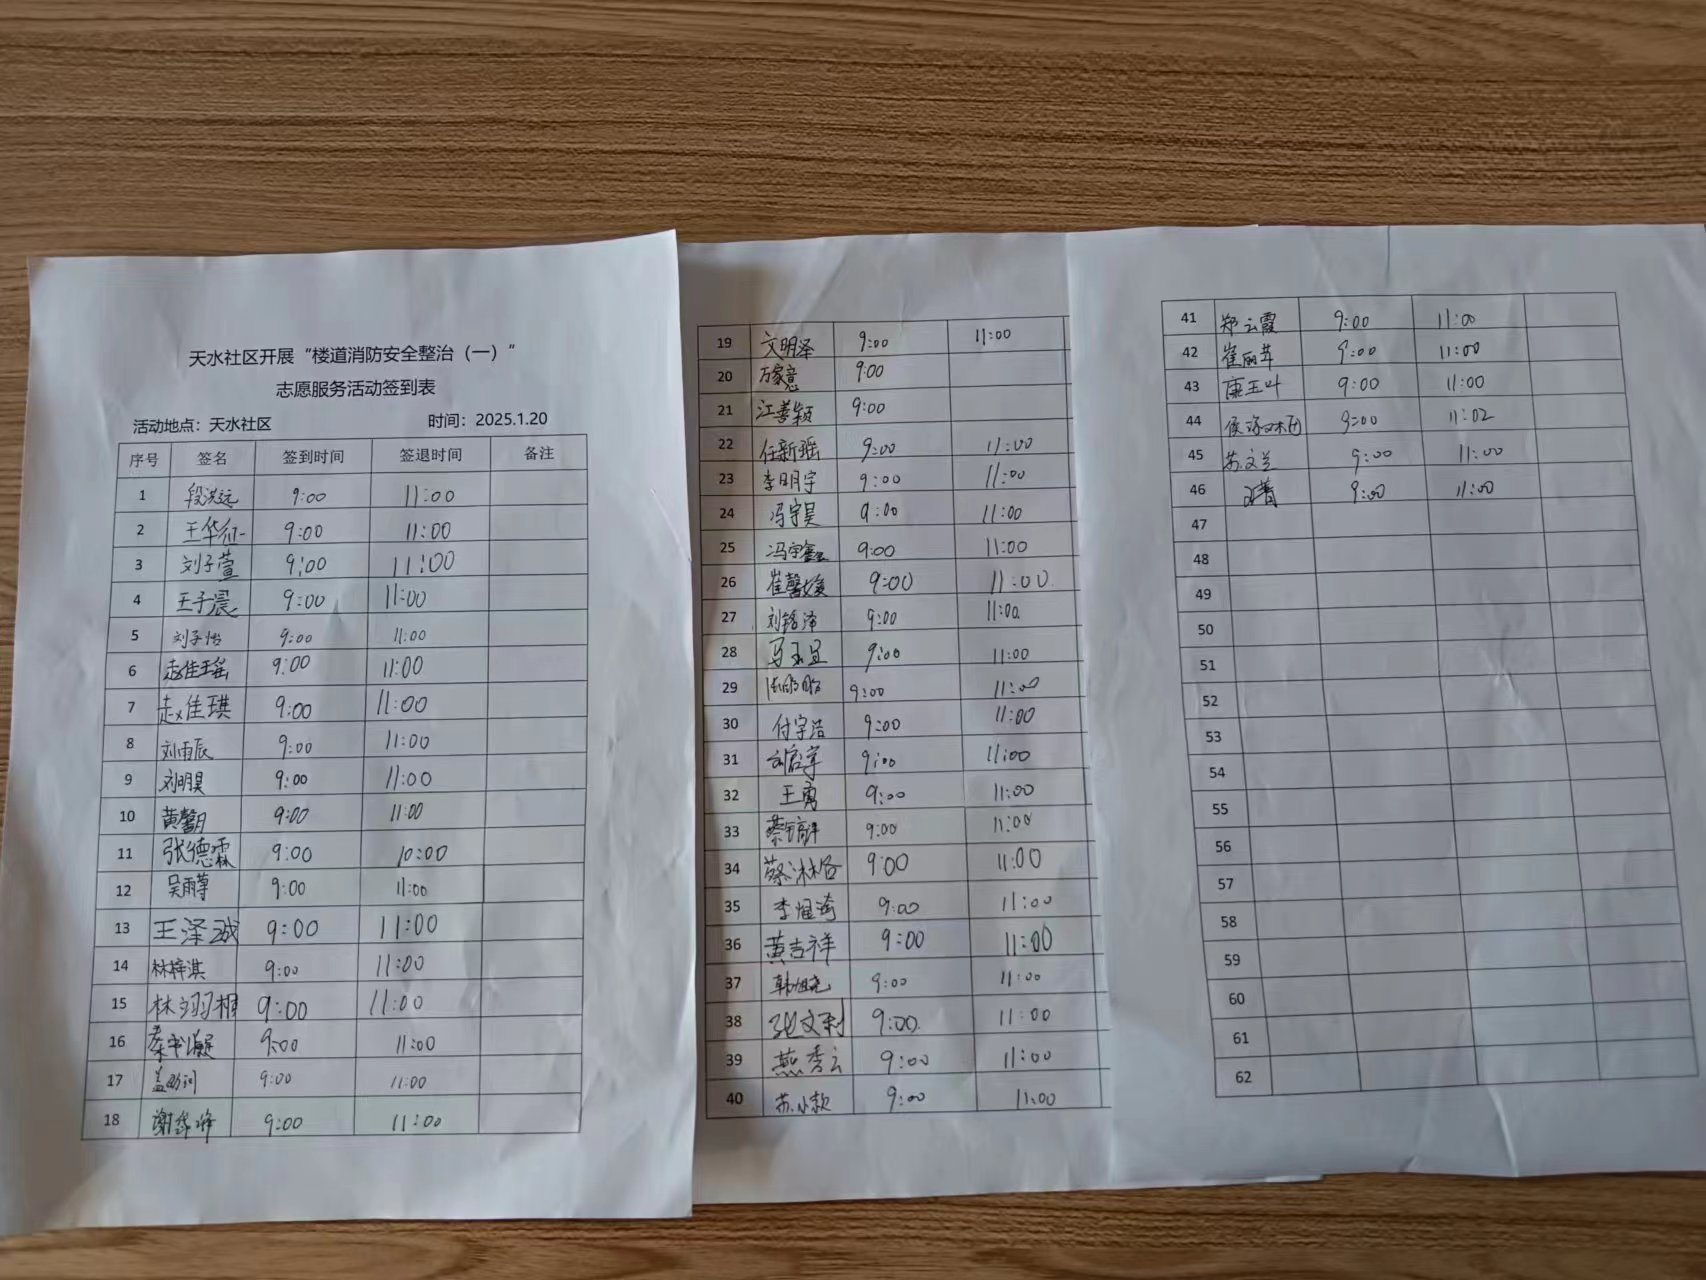 天水社区开展“楼道消防安全整治（一）”
志愿服务活动签到表
活动地点：天水社区 时间：2025.1.20
序号 签名 签到时间 签退时间 备注
1 段洪远 9:00 11:00
2 王华征 9:00 11:00
3 刘子萱 9:00 11:00
4 王子晨 9:00 11:00
5 刘子怡 9:00 11:00
6 赵佳瑶 9:00 11:00
7 赵佳琪 9:00 11:00
8 刘雨辰 9:00 11:00
9 刘明昊 9:00 11:00
10 黄馨月 9:00 11:00
11 张德霖 9:00 10:00
12 吴雨菲 9:00 11:00
13 王泽诚 9:00 11:00
14 林梓淇 9:00 11:00
15 林羽栩 9:00 11:00
16 9:00 11:00
17 9:00 11:00
18 9:00 11:00
19 文明泽 9:00 11:00
20 万家意 9:00
21 江善颖 9:00
22 任新瑶 9:00 11:00
23 李明宇 9:00 11:00
24 冯宇昊 9:00 11:00
25 冯宇鑫 9:00 11:00
26 崔馨媛 9:00 11:00
27 刘铭泽 9:00 11:00
28 9:00 11:00
29 9:00 11:00
30 付宇浩 9:00 11:00
31 刘启宇 9:00 11:00
32 王勇 9:00 11:00
33 9:00 11:00
34 9:00 11:00
35 9:00 11:00
36 黄吉祥 9:00 11:00
37 9:00 11:00
38 张文利 9:00 11:00
39 燕秀云 9:00 11:00
40 苏小款 9:00 11:00
41 郑云霞 9:00 11:00
42 崔丽萍 9:00 11:00
43 康玉叶 9:00 11:00
44 9:00 11:02
45 苏文兰 9:00 11:00
46 9:00 11:00
47
48
49
50
51
52
53
54
55
56
57
58
59
60
61
62